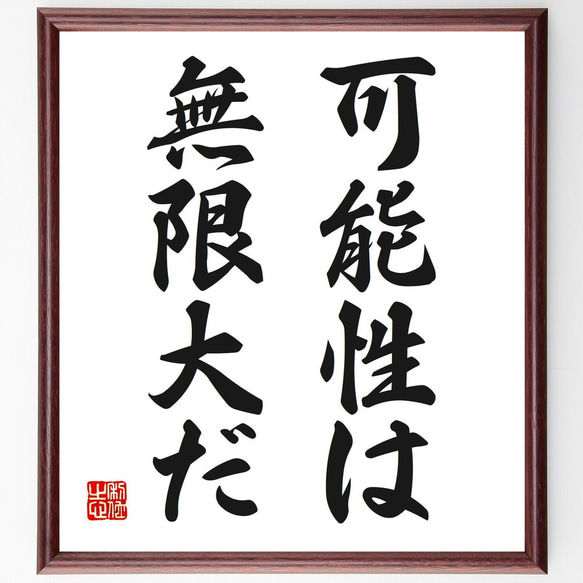 可能性は
無限大だ